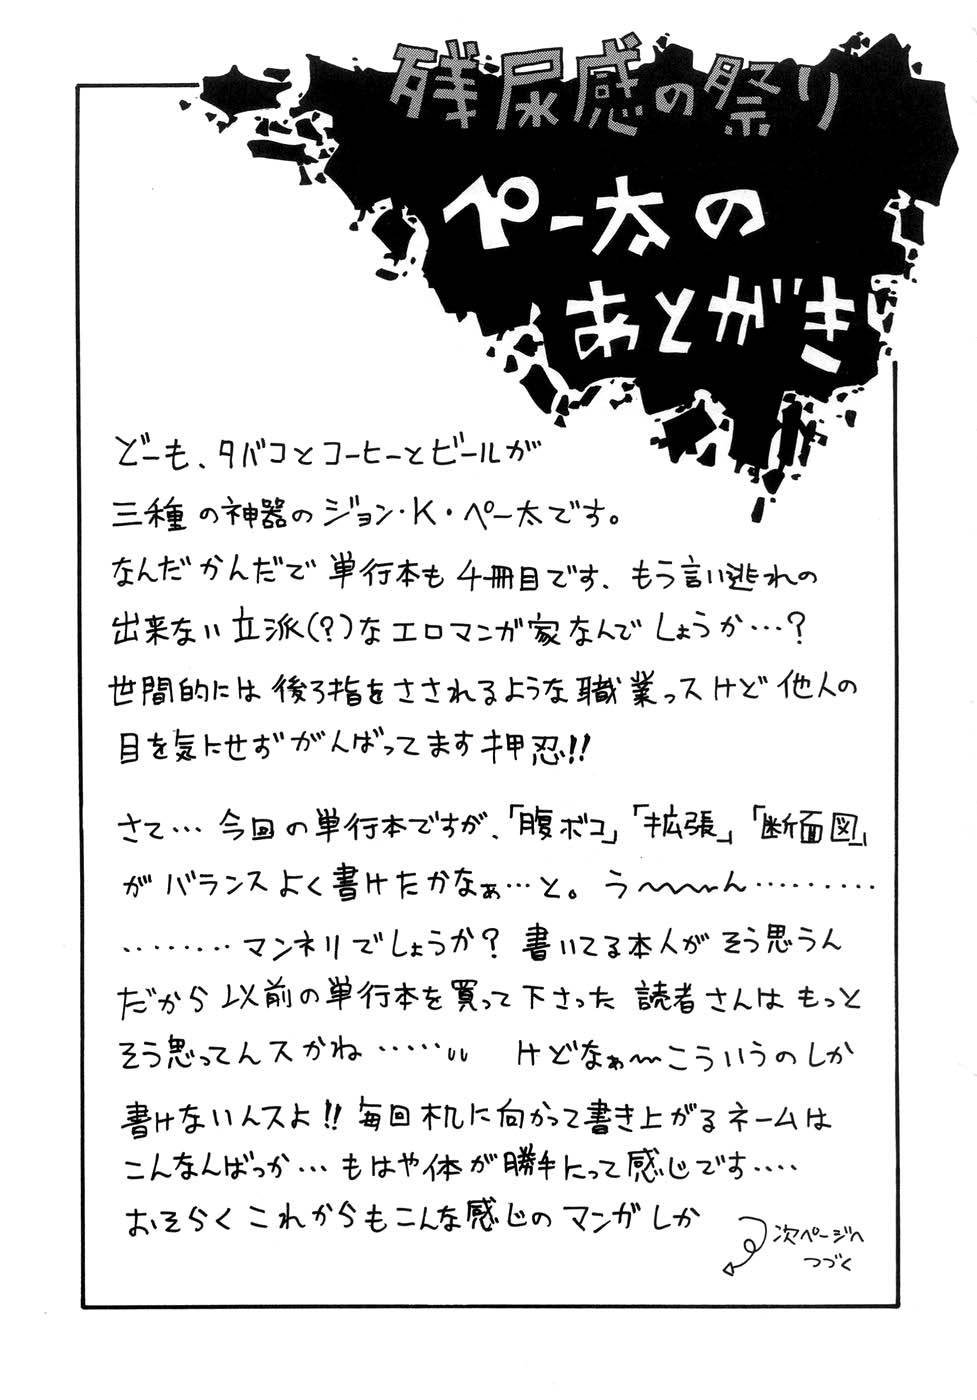 残尿感の祭り
ペー太の
あとがき
どーも、タバコとコーヒーとビールが
三種の神器のジョン・K・ペー太です。
なんだかんだで単行本も4冊目です、もう言い逃れの
出来ない立派(?)なエロマンガ家なんでしょうか…?
世間的には後ろ指をさされるような職業っスけど他人の
目を気にせずがんばってます押忍!!
さて…今回の単行本ですが、「腹ボコ」「拡張」「断面図」
がバランスよく書けたかなぁ…と。う〜〜〜ん………
………マンネリでしょうか?書いてる本人がそう思うん
だから以前の単行本を買って下さった読者さんはもっと
そう思ってんスかね……けどなぁ〜こういうのしか
書けないんスよ!!毎回机に向かって書き上がるネームは
こんなんばっか…もはや体が勝手にって感じです….
おそらくこれからもこんな感じのマンガしか
次ページへ
つづく